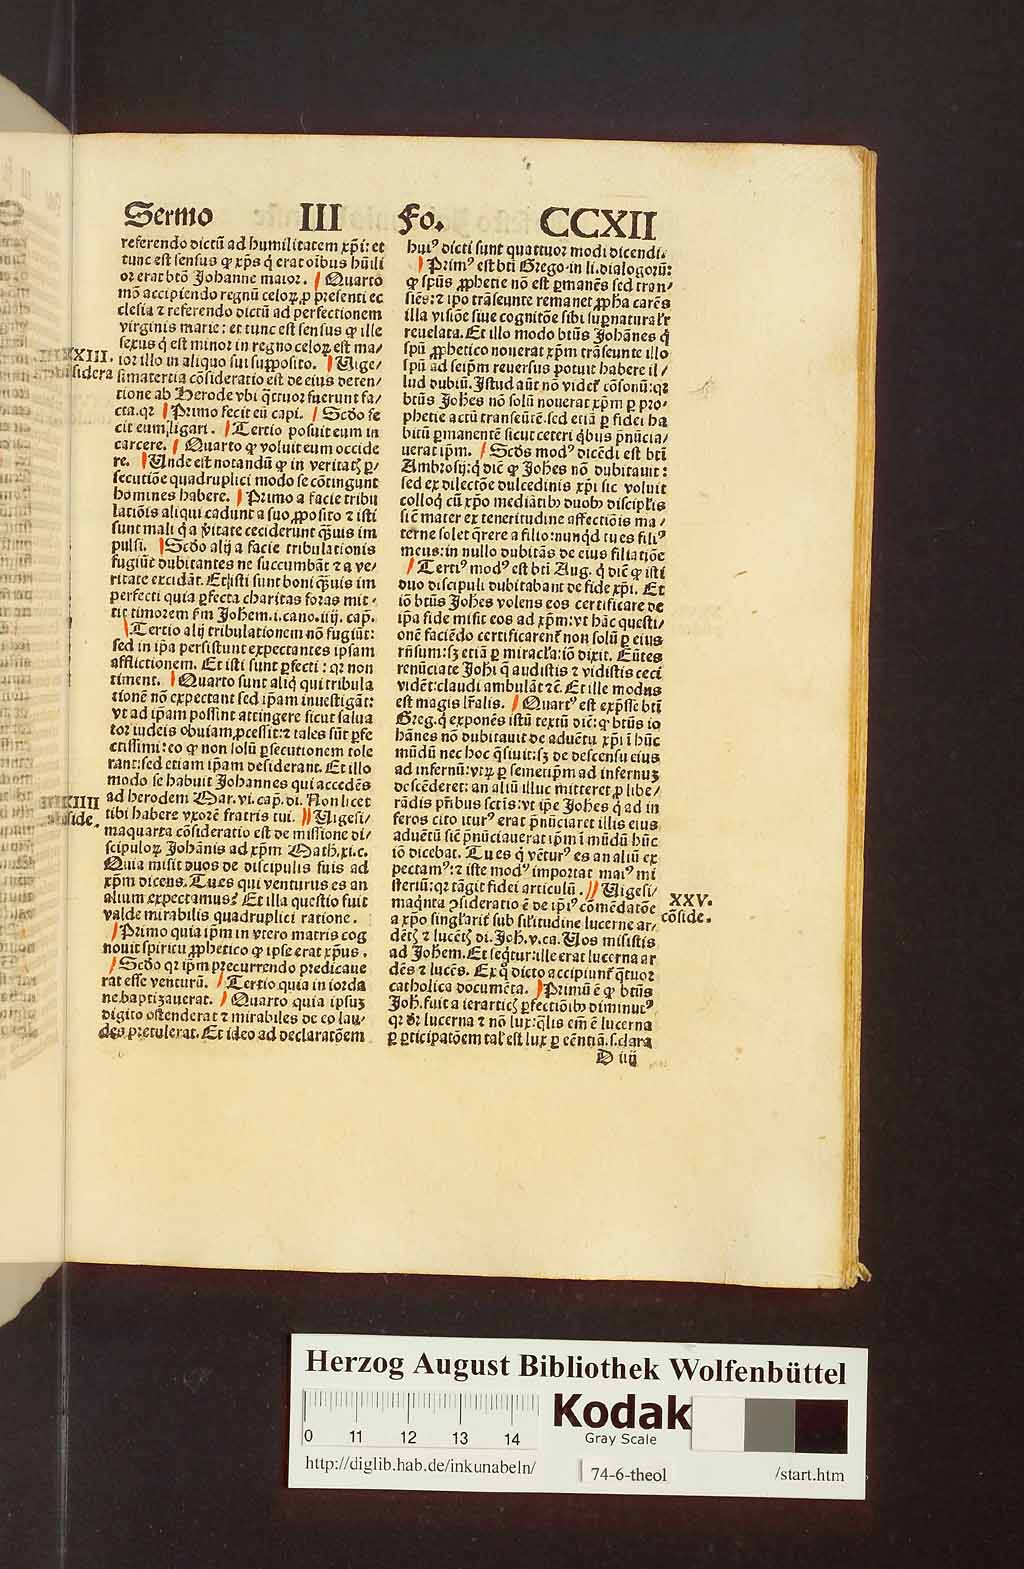 Sermo III Fo. CCXII
referendo dictū ad humilitatem xp̄i: et
tunc est sensus ꝙ xp̄s q̄ erat oībus hūili
or erat btō Johanne maior. Quarto
mō accipiendo regnū celoꝝ ꝓ presenti ec
clesia ⁊ referendo dictū ad perfectionem
virginis marie: et tunc est sensus ꝙ ille
sexus q̄ est minor in regno celoꝝ est ma/
ior illo in aliquo sui supposito. Uige/
simatertia cōsideratio est de eius deten/
tione ab Herode vbi q̄ttuor fuerunt fa/
cta. qꝛ Primo fecit eū capi. Scd̄o fe
cit eum ligari. Tertio posuit eum in
carcere. Quarto ꝙ voluit eum occide
re. Unde est notandū ꝙ in veritatꝭ ꝑ/
secutiōe quadruplici modo se cōtingunt
homines habere. Primo a facie tribu
latiōis aliqui cadunt a suo ꝓposito ⁊ isti
sunt mali q̄ a v̄itate ceciderunt q̄uis im
pulsi. Scd̄o alij a facie tribulationis
fugiūt dubitantes ne succumbāt ⁊ a ve/
ritate excidāt. Et isti sunt boni q̄uis im
perfecti quia ꝑfecta charitas foras mit-
tit timorem fm̄ Johem. i. cano. iiij. cap.
Tertio alij tribulationem nō fugiūt:
sed in ip̄a persistunt expectantes ipsam
afflictionem. Et isti sunt ꝑfecti: qꝛ non
timent. Quarto sunt aliq̄ qui tribula
tionē nō expectant sed ip̄am inuestigāt:
vt ad ip̄am possint attingere sicut salua
tor iudeis obuiam ꝓcessit: ⁊ tales sūt ꝑfe
ctissimi: eo ꝙ non solū ꝑsecutionem tole
rant: sed etiam ip̄am desiderant. Et illo
modo se habuit Johannes qui accedēs
ad herodem Mar. vi. cap. di. Non licet
tibi habere vxorē fratris tui. Uigesi/
maquarta cōsideratio est de missione di/
scipuloꝝ Johānis ad xp̄m Math. xi. c.
Quia misit duos de discipulis suis ad
xp̄m dicens. Tu es qui venturus es an
alium expectamus? Et illa questio fuit
valde mirabilis quadruplici ratione.
Primo quia ip̄m in vtero matris cog
nouit spiritu ꝓphetico ꝙ ipse erat xp̄us.
Scd̄o qꝛ ip̄m precurrendo predicaue
rat esse venturū. Tertio quia in iorda
ne baptizauerat. Quarto quia ipsuꝫ
digito ostenderat ⁊ mirabiles de eo lau/
des pretulerat. Et ideo ad declaratōem
XXIII.
sidera
XXIIII
side.
huiꝰ dicti sunt quattuor modi dicendi.
Primꝰ est bt̄i Grego. in li. dialogorū:
ꝙ spūs ꝓphetie nō est ꝑmanēs sed tran/
siēs: ⁊ ip̄o trāseunte remanet ꝓpha carēs
illa visiōe siue cognitōe sibi suꝑnaturalr̄
reuelata. Et illo modo btūs Johānes q̄
spū ꝓphetico nouerat xp̄m trāseunte illo
spū ad seip̄m reuersus potuit habere il/
lud dubiū. Istud aūt nō videt̄ cōsonū: qꝛ
btūs Johes nō solū nouerat xp̄m ꝑ pro-
phetie actū transeūtē. sed etiā ꝑ fidei ha
bitū ꝑmanentē sicut ceteri q̄bus p̄nūcia/
uerat ip̄m. Scd̄s modꝰ dicēdi est bt̄i
Ambrosij: q̄ dic̄ ꝙ Johes nō dubitauit:
sed ex dilectōe dulcedinis xp̄i sic voluit
colloq̄ cū xp̄o mediātibꝰ duobꝰ discipl̄is
sic̄ mater ex teneritudine affectiōis ma/
terne solet q̄rere a filio: nunq̄d tu es filiꝰ
meus: in nullo dubitās de eius filiatiōe
Tertiꝰ modꝰ est bt̄i Aug. q̄ dic̄ ꝙ isti
duo discipuli dubitabant de fide xp̄i. Et
iō btūs Johes volens eos certificare de
ip̄a fide misit eos ad xp̄m: vt hāc questi/
onē faciēdo certificarent̄ non solū ꝑ eius
rn̄sum: sꝫ etiā ꝑ miracl̄a: iō dixit. Eūtes
renūciate Johi q̄ audistis ⁊ vidistis ceci
vidēt: claudi ambulāt ⁊c̄. Et ille modus
est magis lr̄alis. Quartꝰ est exp̄sse bt̄i
Greg. q̄ exponēs istū textū dic̄: ꝙ btūs io
hānes nō dubitauit de aduētu xp̄i ī hūc
mūdū nec hoc q̄siuit: sꝫ de descensu eius
ad infernū: vtꝝ ꝑ semetip̄m ad infernuꝫ
descēderet: an aliū illuc mitteret ꝓ libe/
rādis pr̄ibus sctīs: vt ip̄e Johes q̄ ad in
feros cito iturꝰ erat p̄nūciaret illis eius
aduētū sic̄ p̄nūciauerat ip̄m ī mūdū hūc
iō dicebat. Tu es q̄ vēturꝰ es an aliū ex
pectamꝰ: ⁊ iste modꝰ importat maiꝰ mi
steriū: qꝛ tāgit fidei articulū. Uigesi/
maq̄nta ↄsideratio ē de ip̄iꝰ cōmēdatōe
a xp̄o singl̄arit̄ sub sil̄itudine lucerne ar/
dētꝭ ⁊ lucētꝭ di. Joh. v. ca. Uos misistis
ad Johem. Et seq̄tur: ille erat lucerna ar
dēs ⁊ lucēs. Ex q̄ dicto accipiunt̄ q̄tuor
catholica documēta. Primū ē ꝙ btūs
Joh. fuit a ierarticꝭ ꝑfectiōibꝰ diminutꝰ
qꝛ dr̄ lucerna ⁊ nō lux: q̄lis em̄ ē lucerna
ꝑ ꝑticipatōem tal̄ est lux ꝑ cēntiā. s. clara
XXV.
cōside.
D iiij
Herzog August Bibliothek Wolfenbüttel
0 11 12 13 14
Kodak
Gray Scale
http://diglib.hab.de/inkunabeln/ 74-6-theol /start.htm